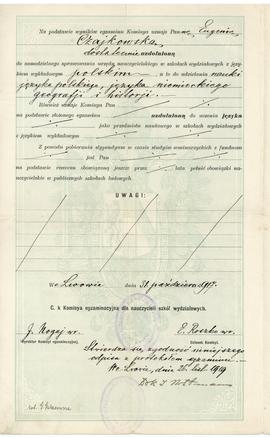 Na podstawie wyników egzaminu Komisya uznaje Pannę Eugenię
Czajkowską
dostatecznie uzdolnioną
do samodzielnego sprawowania urzędu nauczycielskiego w szkołach wydziałowych z językiem
wykładowym polskim — a to do udzielania nauki
języka polskiego, języka niemieckiego
geografii i historji.
Również uznaje Komisya Pan
na podstawie złożonego egzaminu uzdolnioną do uczenia języka
jako przedmiotu naukowego w szkołach wydziałowych z
językiem wykładowym
Z powodu pobierania stypendyum w czasie studyów seminarzyalnych z funduszu
jest Pan
na podstawie rewersu obowiązaną jeszcze przez lata pełnić obowiązki nauczycielskie
w publicznych szkołach ludowych.
UWAGI:
We Lwowie dnia 31. października 1917.
C. k Komisya egzaminacyjna dla nauczycieli szkół wydziałowych.
J. Nogaj wr. E. Roszka wr.
Dyrektor Komisyi egzaminacyjnej. Członek Komisyi.
Stwierdza się zgodność niniejszego
odpisu z protokołem egzaminu
We Lwowie, dnia 26. 1919